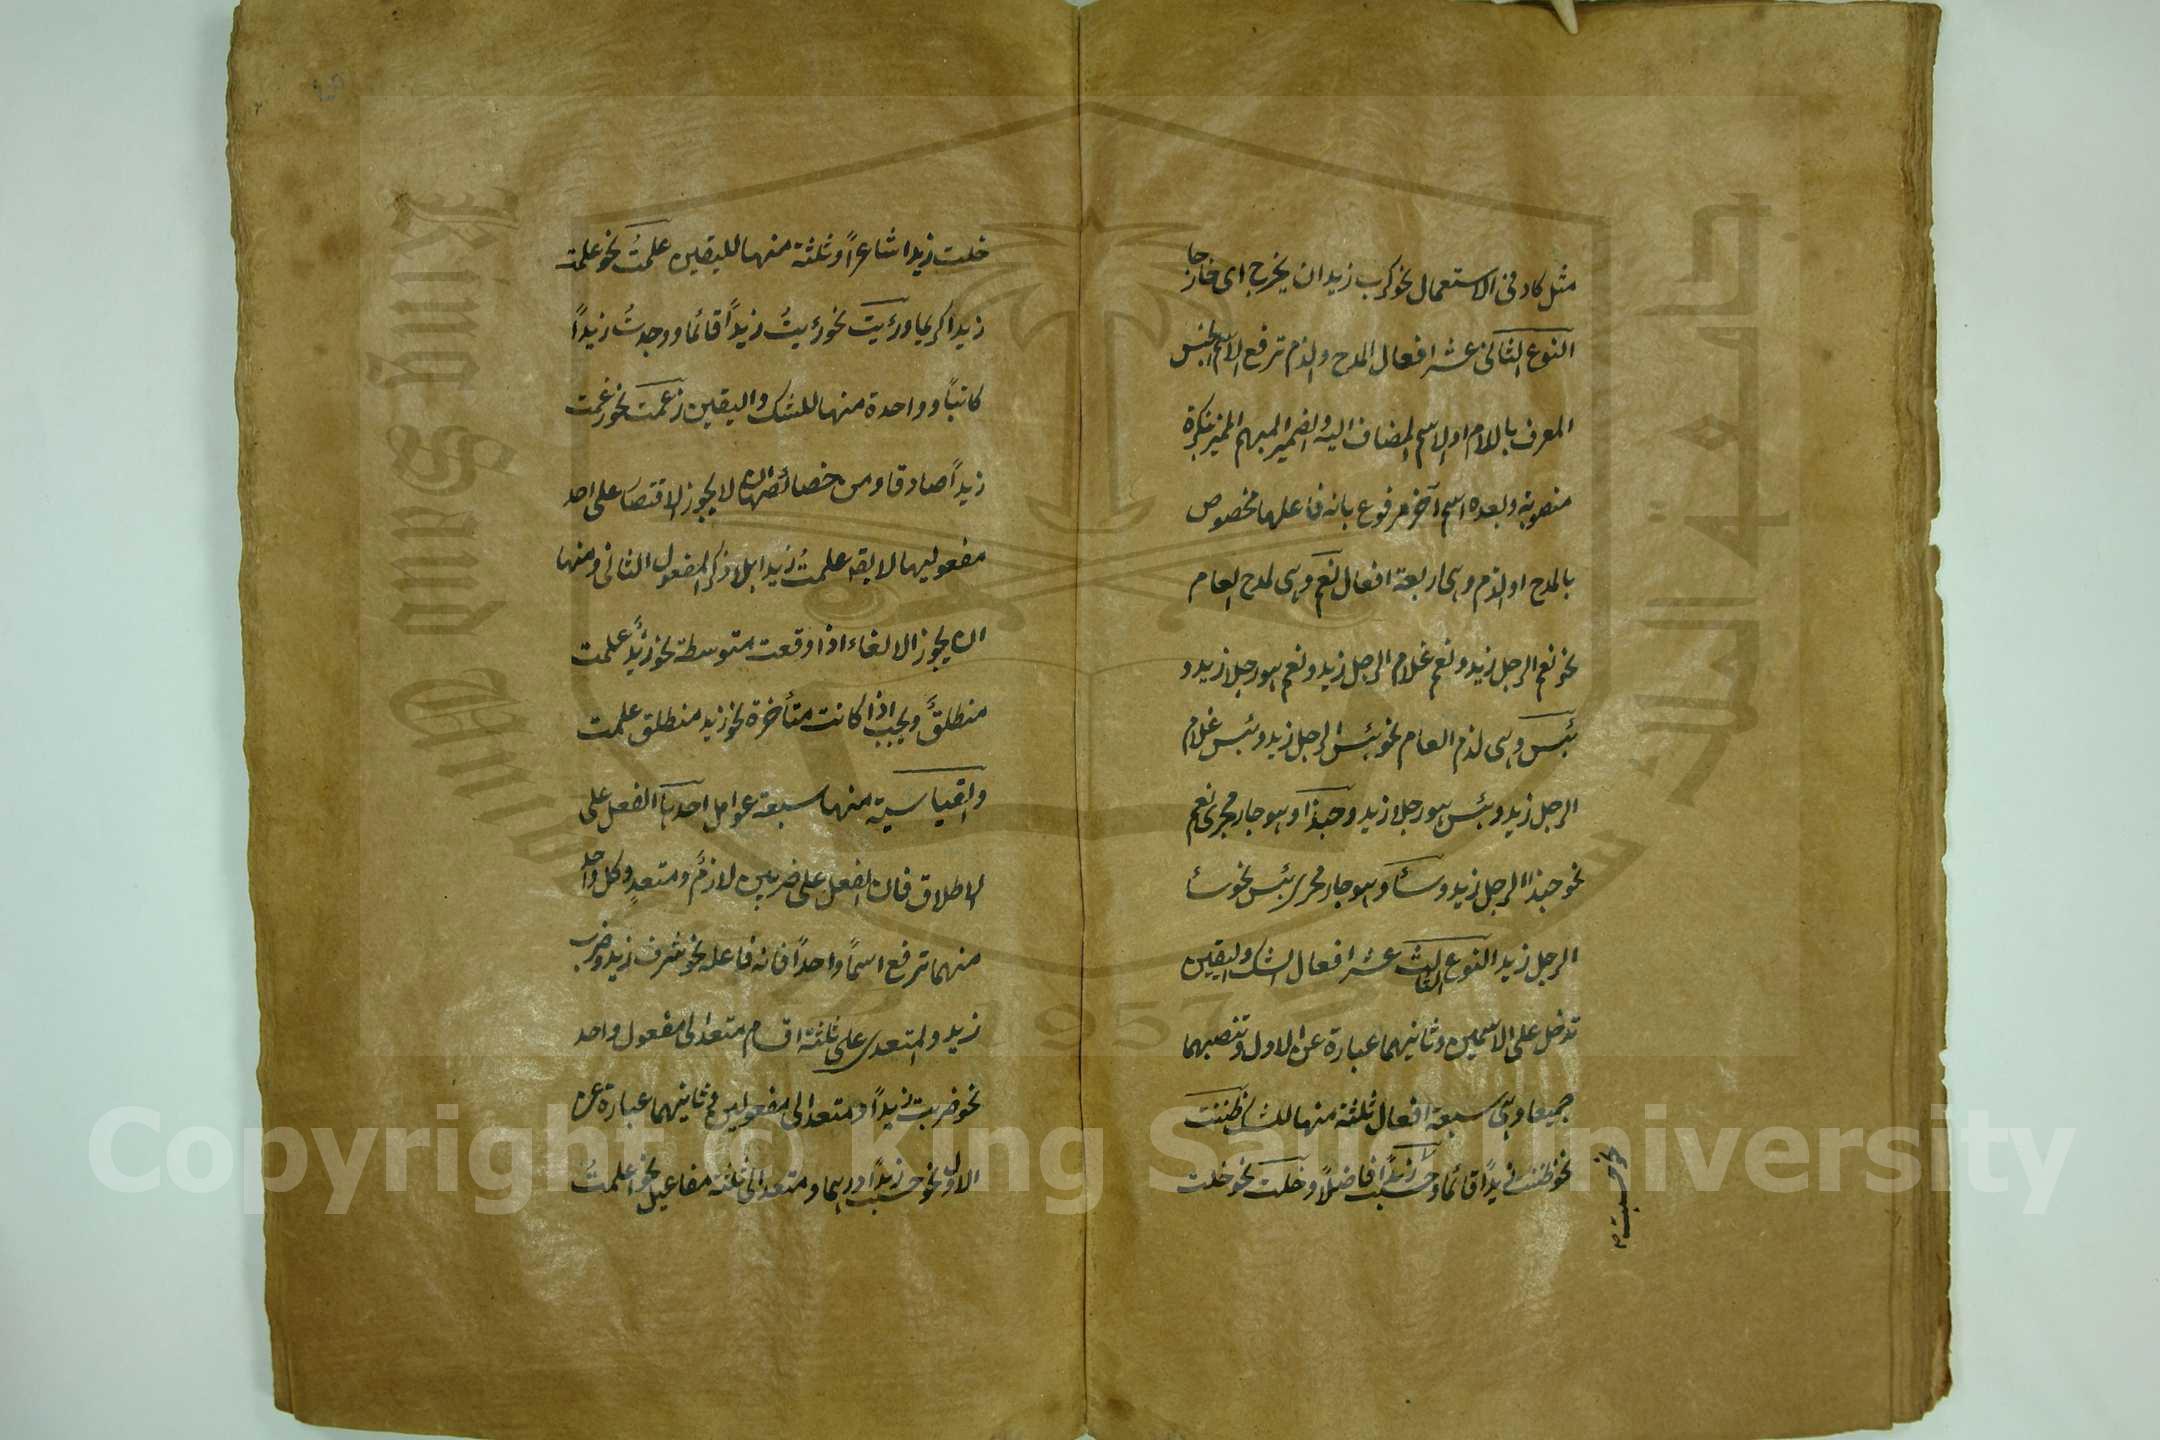 مثل كاد فى الاستعمال نحو كرب زيد ان يخرج اى خارجا
النوع الثانى عشر افعال المدح والذم ترفع الاسم الجنس
المعرف باللام او الاسم المضاف اليه والضمير المبهم المميز بنكرة
منصوبة وبعده اسم آخر مرفوع بانه فاعلها مخصوص
بالمدح او الذم وهى اربعة افعال نعم وهى لمدح العام
نحو نعم الرجل زيد ونعم غلام الرجل زيد ونعم هو رجلا زيد و
بئس وهى لذم العام نحو بئس الرجل زيد وبئس غلام
الرجل زيد وبئس هو رجلا زيد وحبذا وهو جار مجرى نعم
نحو حبذا الرجل زيد وساء وهو جار مجرى بئس نحو ساء
الرجل زيد النوع الثالث عشر افعال الشك واليقين
تدخل على الاسمين وثانيهما عبارة عن الاول وتنصبهما
جميعا وهى سبعة افعال ثلثة منها للشك ظننت
نحو ظننت زيداً قائما وحسبت زيداً فاضلاً وخلت نحو خلت
نحو حسبت
خلت زيدا شاعراً وثلثة منها لليقين علمتُ نحو علمت
زيدا كريما ورئيت نحو رئيتُ زيداً قائما ووجدتُ زيداً
كاتباً وواحدة منها للشك واليقين زعمت نحو زعمت
زيداً صادقا ومن خصائصها ان لا يجوز الاقتصار على احد
مفعوليها لا يقه علمتُ زيدا بلا ذكر المفعول الثانى ومنها
ان يجوز الالغاء اذا وقعت متوسطة نحو زيدٌ علمت
منطلقٌ ويجب اذا كانت متأخرة نحو زيد منطلق علمت
والقياسية منها سبعة عوامل احدها الفعل على
الاطلاق فان الفعل على ضربين لازمٌ ومتعدٍ وكل واحد
منهما ترفع اسماً واحداً فانه فاعله نحو شرف زيد وضرب
زيد والمتعدى على ثلثة اقسام متعد الى مفعول واحد
نحو ضربت زيداً ومتعد الى مفعولين وثانيهما عبارة عن
الاول نحو حسبت زيداً درهما ومتعد الى ثلثة مفاعيل نحو اعلمتُ
Copyright © King Saud University
King Saud University
جامعة الملك سعود
1957